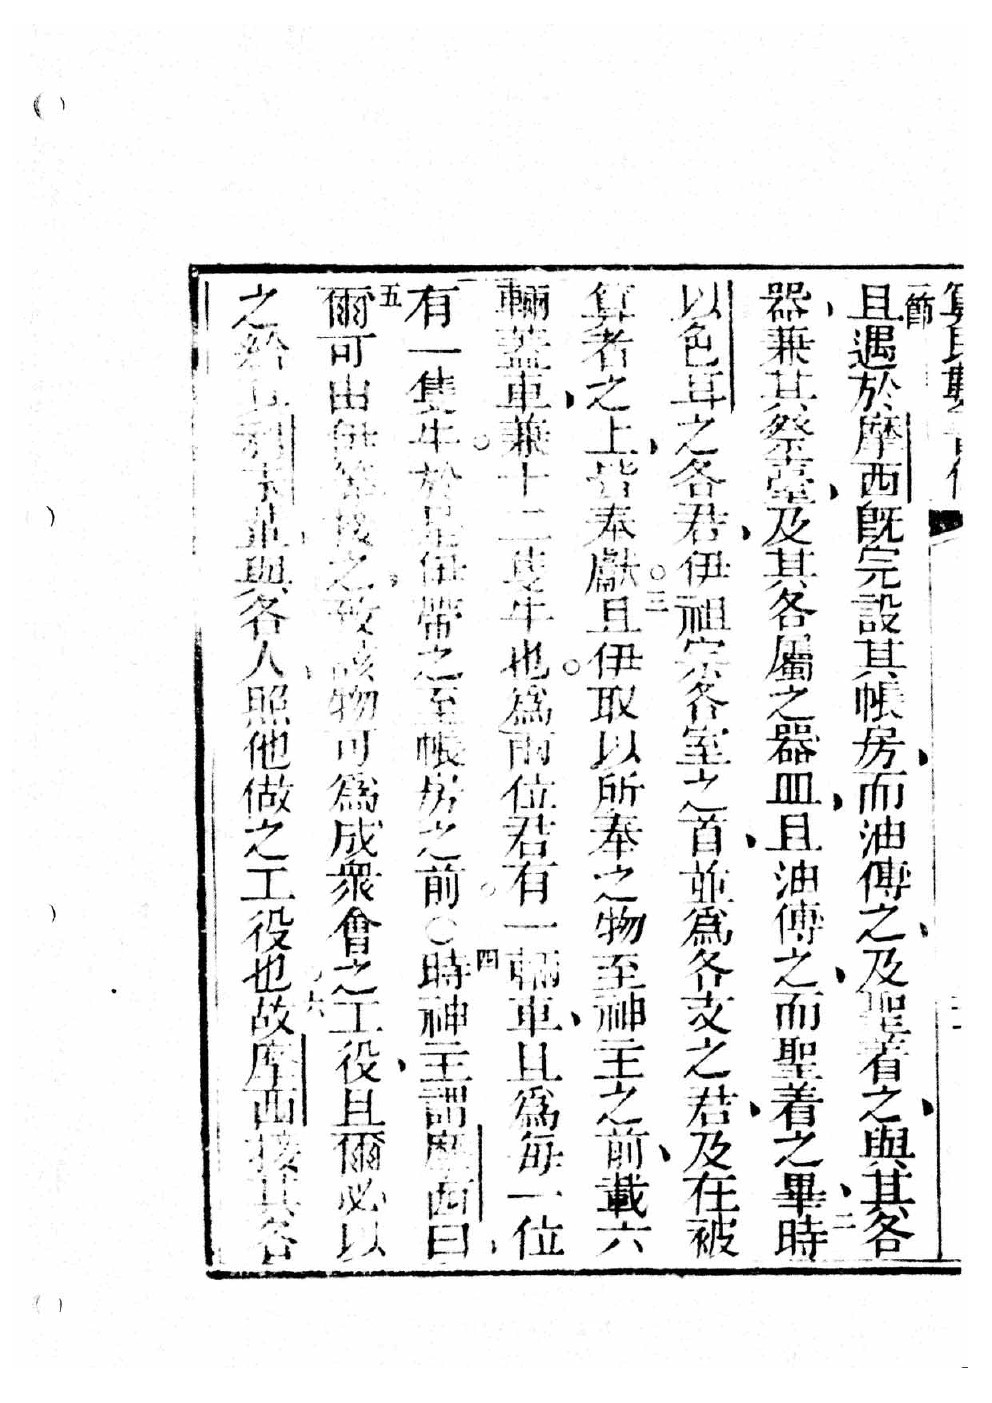 算民數書傳
一節且遇於摩西旣完設其帳房、而油傅之、及聖着之、與其各
器、兼其祭臺、及其各屬之器皿、且油傅之、而聖着之畢、二時
以色耳之各君、伊祖宗各室之首、並爲各支之君、及在被
算者之上、皆奉獻○三且伊取以所奉之物至神主之前、載六
輛蓋車、兼十二隻牛也○爲兩位君有一輛車、且爲每一位
有一隻牛○於是伊帶之至帳房之前○四時神主謂摩西曰、
五爾可由伊等接之、致該物可爲成衆會之工役、且爾必以
之給、與各人照他做之工役也、六故摩西接其各